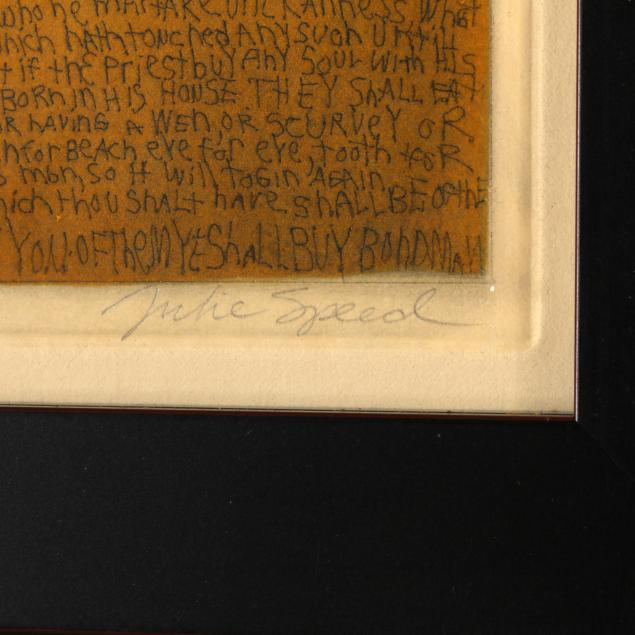 who he may take uncleanness what
hath touched any such until
if the Priest buy any Soul with His
BORN in HIS HOUSE THEY SHALL EAT
HAVING A Wen, OR SCURVEY OR
for BEACh eye for eye, tooth foR
mon, so it will togin AGAIN
which thou shalt have, SHALL BE OF the
YOU. OF TheM YE ShALL BUY BONDMAN
Julie Speed